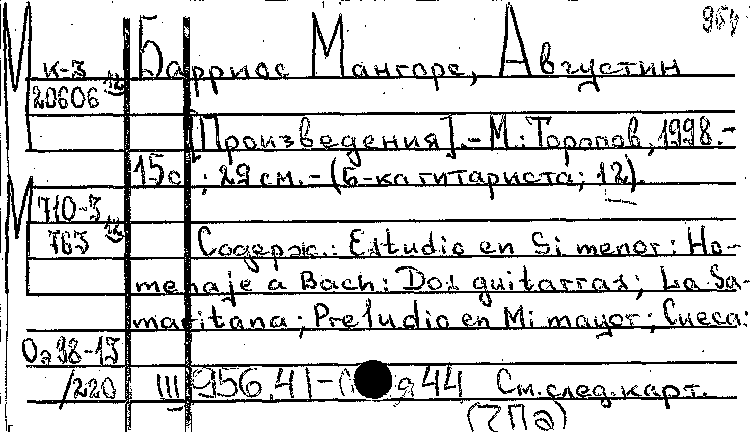 964
М к-3 Барриос Мангоре, Августин
20606 12
[Произведения]. - М.: Торопов, 1998. -
15с.; 29 см. - (Б-ка гитариста; 12).
М 710-3
763 12 Содерж.: Estudio en Si menor; Ho-
menaje a Bach; Dos guitarras; La Sa-
maritana; Preludio en Mi mayor; Cueca;
Оэ98-13
/220 III 956.41- я44 См.след.карт.
(2ПЭ)